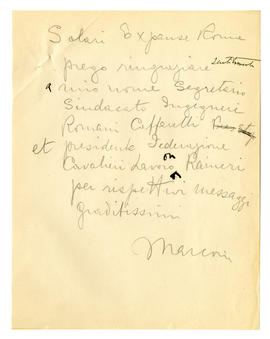 Solari Expanse Rome
prego ringraziare
a mio nome Segretario
Sindacato Ingegneri
Romani Caffarelli
et presidente Federazione
Cavalieri Lavoro Raineri
per rispettivi messaggi
graditissimi
Marconi